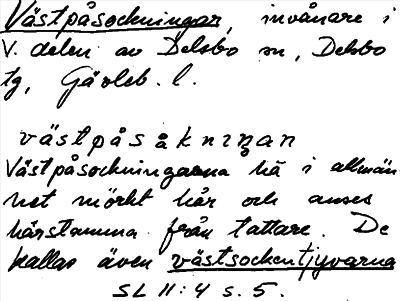 Västpåsockningar, invånare i
V. delen av Delsbo sn, Delsbo
tg, Gävleb. l.
västpåsåkniŋan
Västpåsockningarna hā i allmän-
het mörkt hår och anses
härstamma från tattare. De
kallas även västsockentjyvarna
SL II:4 s. 5.